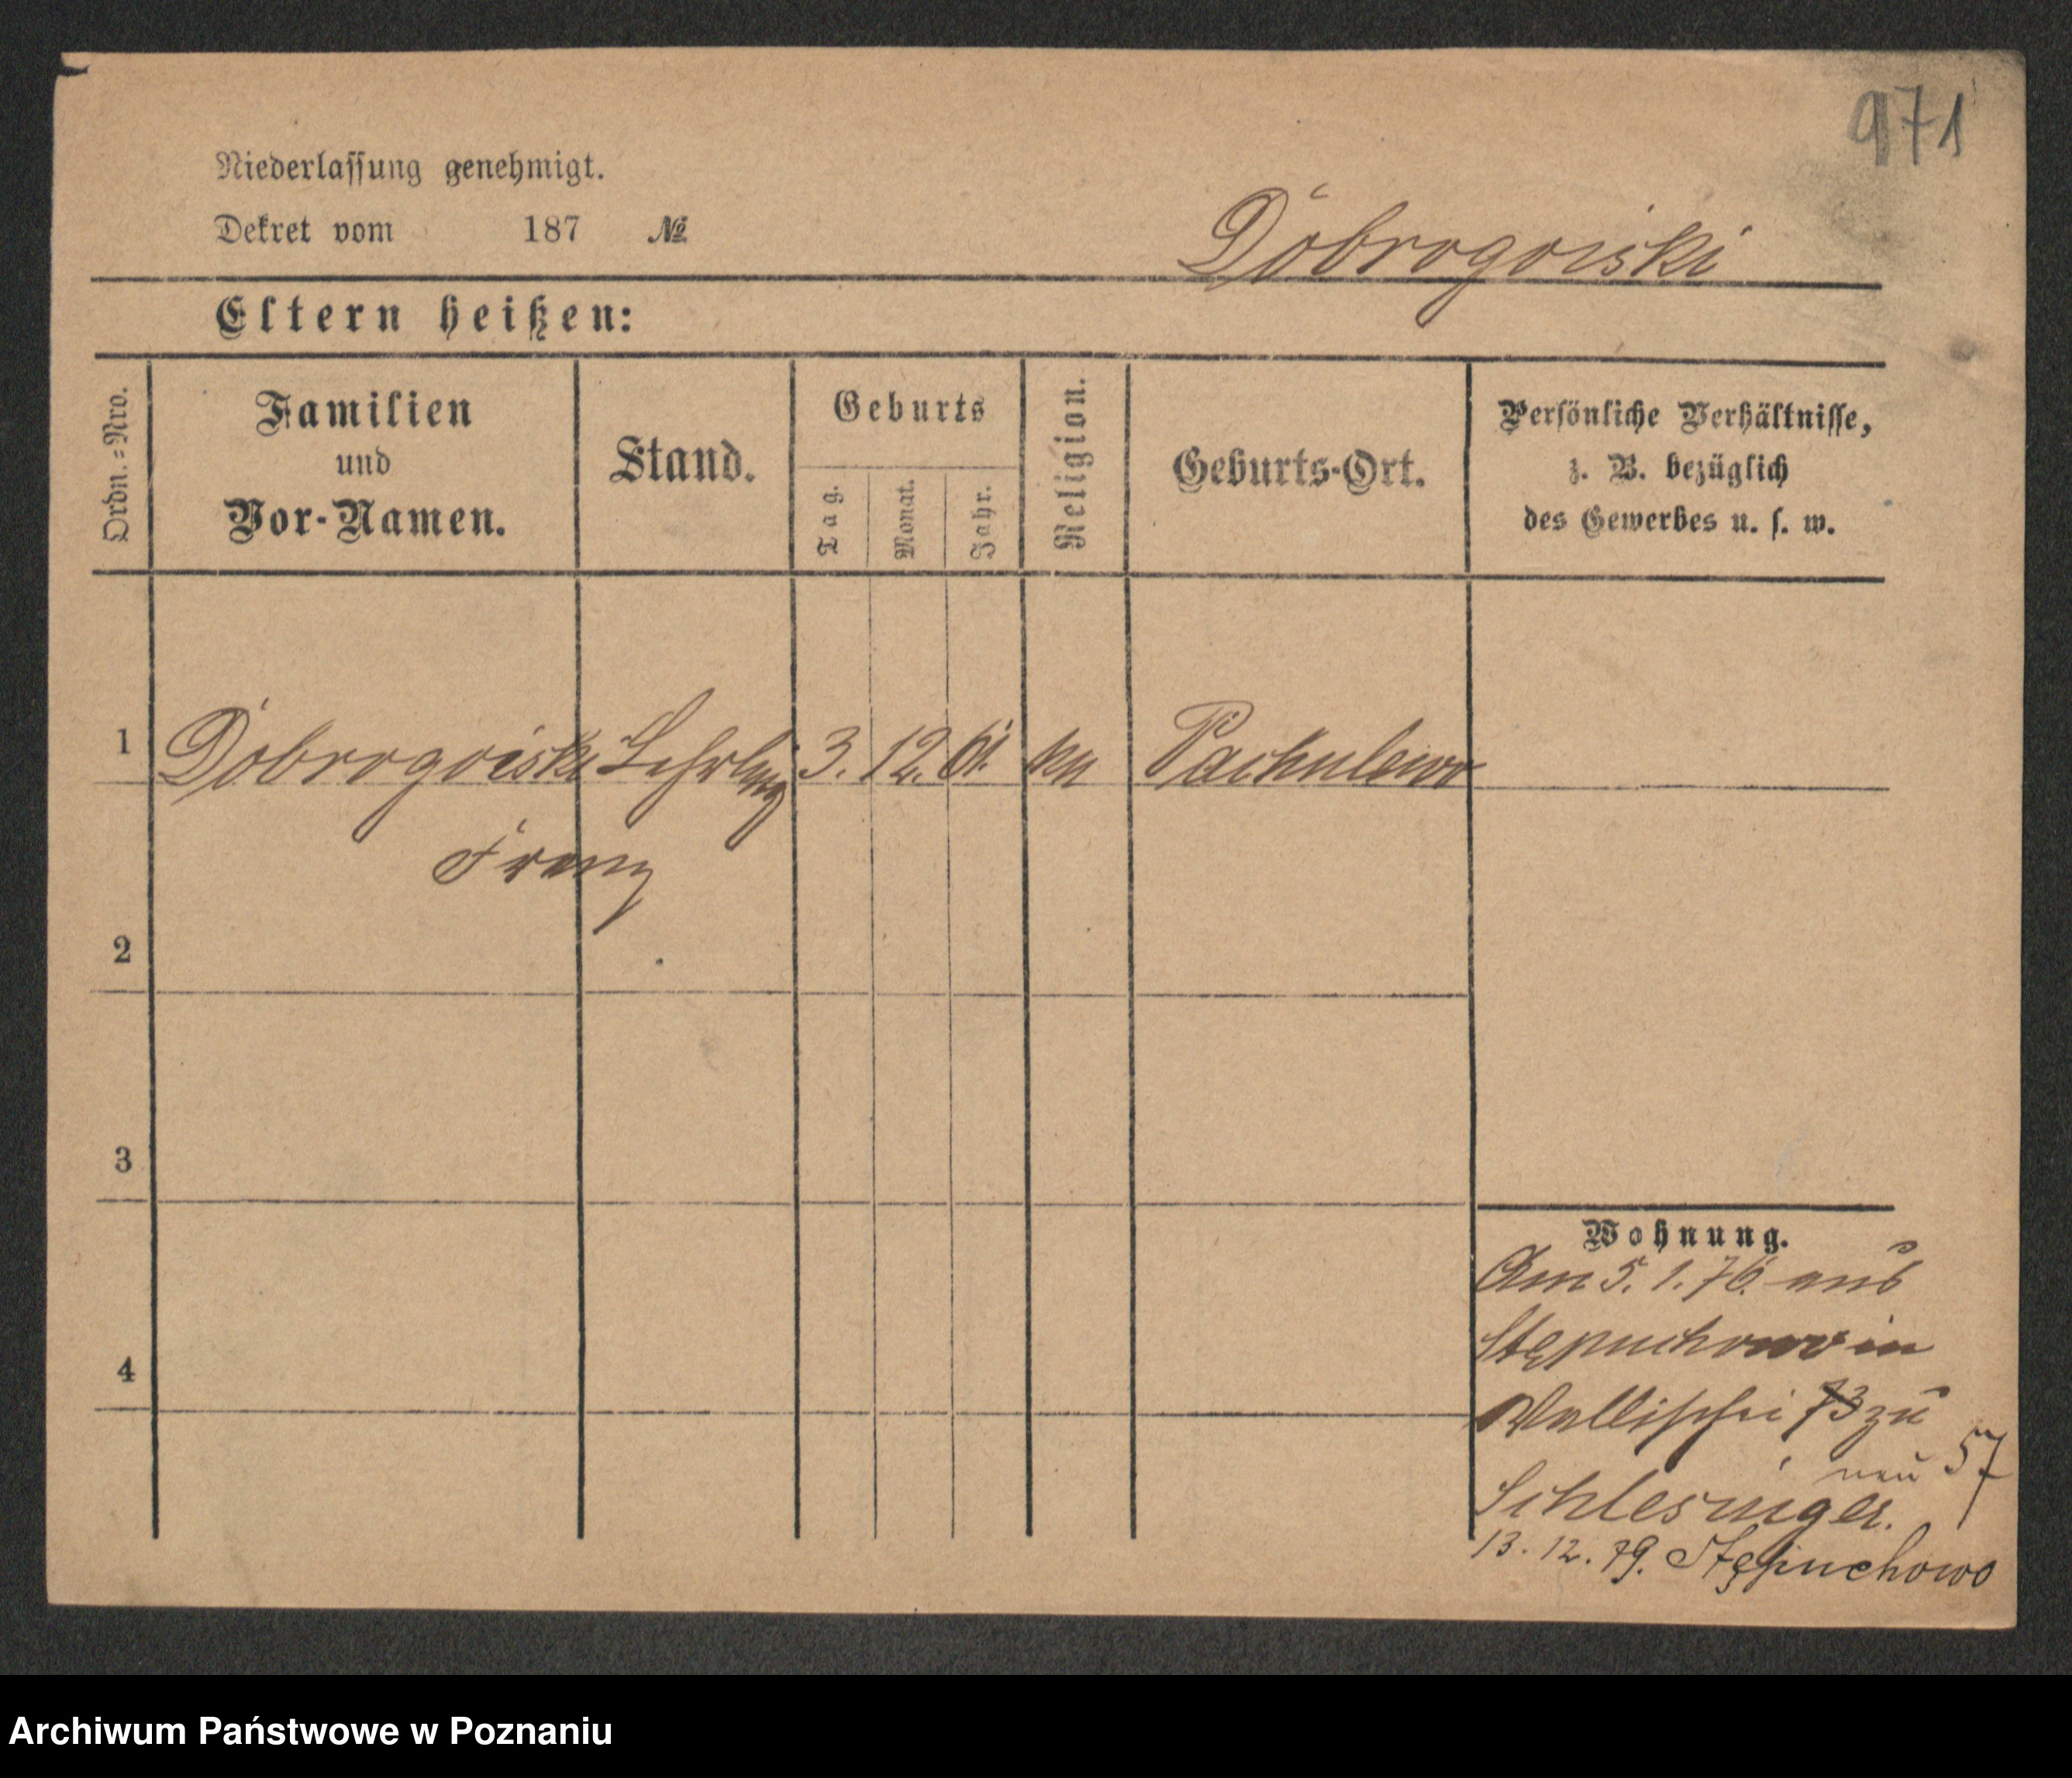 971
Niederlassung genehmigt.
Dekret vom 187 №
Dobrogoiski
Eltern heißen:
Ordn.=Nro.
Familien
und
Vor-Namen.
Stand.
Geburts
Tag.
Monat.
Jahr.
Religion.
Geburts-Ort.
Persönliche Verhältnisse,
z. B. bezüglich
des Gewerbes u. s. w.
1 Dobrogoiski Lehrling 3. 12. 61. Pachulewo
Franz
2
3
4
Wohnung.
Am 5. 1. 76. aus
Stępuchowo in
Wallischei 73 zu
neu 57
Schlesinger.
13. 12. 79. Stępuchowo
Archiwum Państwowe w Poznaniu